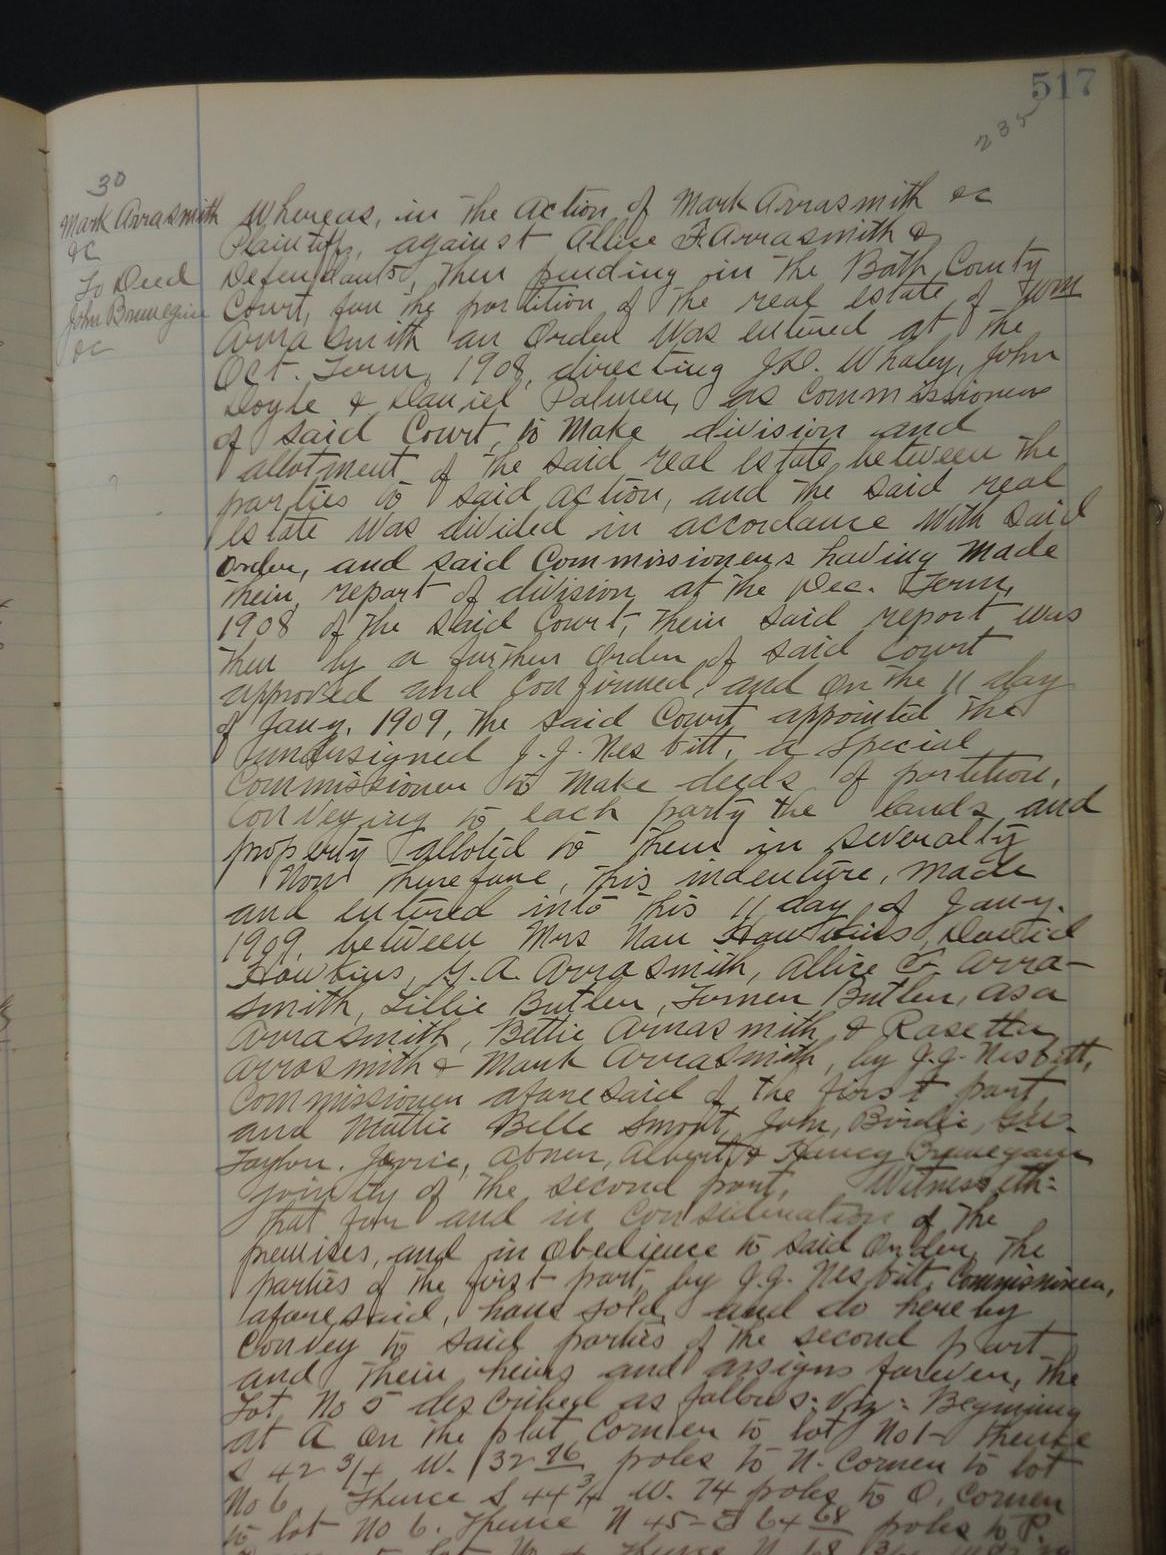 517
235
30
Mark Arrasmith
&c
To Deed
John Brunegin
&c
Whereas, in the action of Mark Arrasmith &c
Plaintiffs, against Allice F. Arrasmith &
Defendants, then pending in the Bath County
Court, for the partition of the real estate of Wm
Arrasmith an Order was entered at the
Oct. Term, 1908, directing J.D. Whaley, John
Doyle & Daniel Palmer, as Commissioners
of said Court, to make division and
allotment of the said real estate between the
parties to said action, and the said real
estate was divided in accordance with said
order, and said Commissioners having made
their report of division at the Dec. Term,
1908 of the said Court, their said report was
then by a further order of said Court
approved and Confirmed, and on the 11 day
of Jany. 1909, the said Court appointed the
undersigned J.J. Nesbitt, a Special
Commissioner to make deeds of partition,
conveying to each party the lands and
property alloted to them in severalty
Now therefore, this indenture, made
and entered into this 11 day of Jany.
1909, between Mrs Nan Hawkins,
Hawkins, G.A. Arrasmith, Allice F. Arra-
smith, Lillie Butler, Butler, Asa
Arrasmith, Bettie Arrasmith, & Rosetta
Arrosmith & Mark Arrasmith, by J.J. Nesbitt,
Commissioner aforesaid of the first part
and Mattie Belle Smoot, John, Birdie,
Taylor, Abner, Albert & Brunegan
jointly of the second part, Witnesseth:
that for and in consideration of the
premises, and in obedience to said Order, the
parties of the first part, by J.J. Nesbitt, Commissioner,
aforesaid, have sold and do hereby
Convey to said parties of the second part
and their heirs and assigns forever, the
Lot No 5 described as follows: Viz: Beginning
at A on the plat Corner to lot No 1- thence
S 42 3/4 W. 132 96 poles to N. Corner to lot
No 6, Thence S 44 3/4 W. 74 poles to O, Corner
to lot No 6. Thence N 45- E 64 68 poles to P.